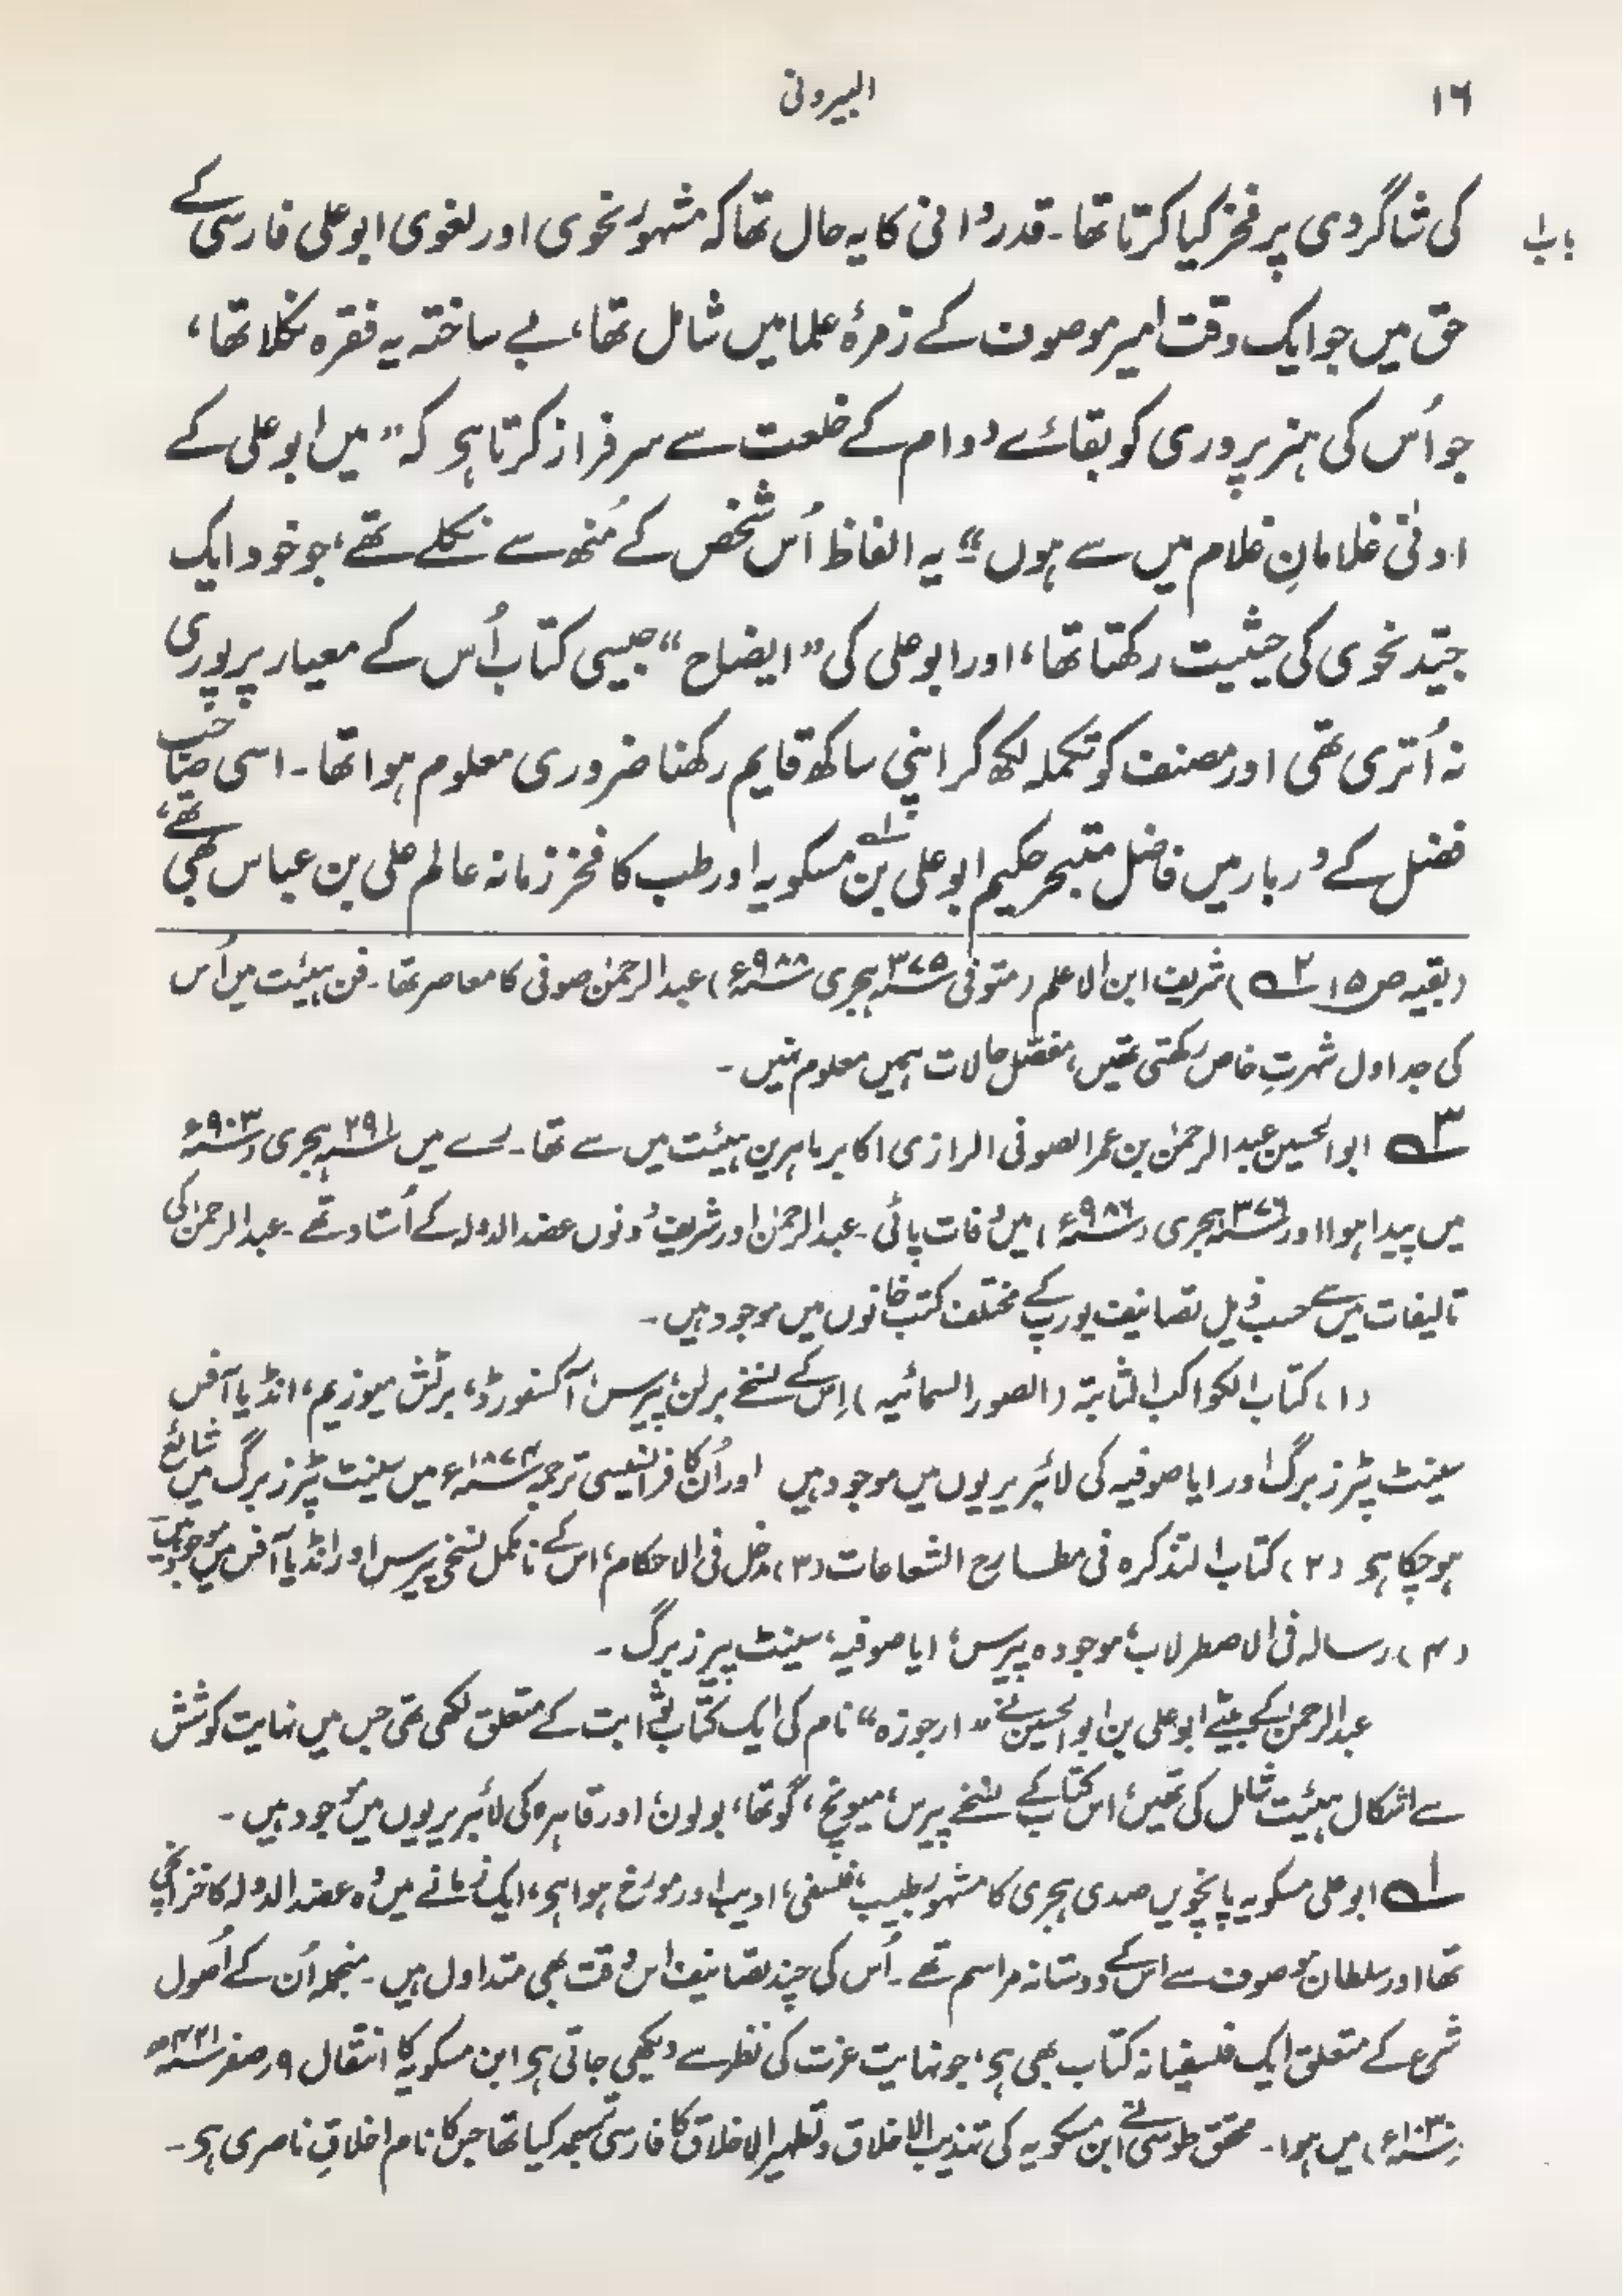 ۱۶
البیرونی
باب ۱
کی شاگردی پر فخر کیا کرتا تھا۔ قدردانی کا یہ حال تھا کہ مشہور نحوی اور لغوی ابوعلی فارسی کے
حق میں جو ایک وقت امیر موصوف کے زمرۂ علما میں شامل تھا، بے ساختہ یہ فقرہ نکلا تھا،
جو اُس کی ہنر پروری کو بقائے دوام کے خلعت سے سرفراز کرتا ہی کہ ”میں ابوعلی کے
ادنٰی غلامانِ غلام میں سے ہوں“ یہ الفاظ اُس شخص کے مُنھ سے نکلے تھے، جو خود ایک
جیّد نحوی کی حیثیت رکھتا تھا، اور ابوعلی کی ”ایضاح“ جیسی کتاب اُس کے معیار پر پوری
نہ اُتری تھی اور مصنف کو تکملہ لکھ کر اپنی ساکھ قایم رکھنا ضروری معلوم ہوا تھا۔ اسی صاحب
فضل کے دربار میں فاضل متبحر حکیم ابوعلی بن مسکویہ۱؎ اور طب کا فخر زمانہ عالم علی بن عباس بھی تھے،
(بقیہ ص ۱۵، ۲؎) شریف ابن الاعلم (متوفی ۳۷۵؁ ہجری ۹۸۸؁ء) عبدالرحمٰن صوفی کا معاصر تھا۔ فن ہیئت میں اُس
کی جداول شہرتِ خاص رکھتی تھیں، مفصّل حالات ہمیں معلوم نہیں۔
۳؎ ابوالحسین عبدالرحمٰن بن عمر الصوفی الرازی اکابر ماہرین ہیئت میں سے تھا۔ رے میں ۲۹۱؁ ہجری (۹۰۳؁ء
میں پیدا ہوا اور ۳۷۶؁ ہجری (۹۸۶؁ء) میں وفات پائی۔ عبدالرحمٰن اور شریف دونوں عضدالدولہ کے اُستاد تھے۔ عبدالرحمٰن کی
تالیفات میں سے حسب ذیل تصانیف یورپ کے مختلف کتب خانوں میں موجود ہیں۔
(۱) کتاب الکواکب الثابتۃ (الصور السمائیہ) اِس کے نسخے برلن، پیرس، آکسفورڈ، برٹش میوزیم، انڈیا آفس
سینٹ پٹرزبرگ اور ایا صوفیہ کی لائبریریوں میں موجود ہیں اور اُن کا فرانسیسی ترجمہ ۱۸۷۴؁ء میں سینٹ پٹرزبرگ میں شائع
ہوچکا ہی (۲) کتاب التذکرہ فی مطارح الشعاعات (۳) مدخل فی الاحکام، اس کے نامکمل نسخے پیرس اور انڈیا آفس میں موجود ہیں
(۴) رسالہ فی الاصطرلاب، موجودہ پیرس، ایا صوفیہ، سینٹ پیرزبرگ۔
عبدالرحمٰن کے بیٹے ابوعلی بن ابوالحسین نے ”ارجوزہ“ نام کی ایک کتاب ثوابت کے متعلق لکھی تھی جس میں نہایت کوشش
سے اشکال ہیئت شامل کی تھیں، اس کتاب کے نسخے پیرس، میونچ، گوتھا، بولون، اور قاہرہ کی لائبریریوں میں موجود ہیں۔
۱؎ ابوعلی مسکویہ پانچویں صدی ہجری کا مشہور طبیب، فلسفی، ادیب اور مورخ ہوا ہی، ایک زمانے میں وہ عضدالدولہ کا خزانچی
تھا اور سلطان موصوف سے اس کے دوستانہ مراسم تھے۔ اُس کی چند تصانیف اس وقت بھی متداول ہیں۔ منجملہ اُن کے اُصول
شرع کے متعلق ایک فلسفیانہ کتاب بھی ہی، جو نہایت عزت کی نظر سے دیکھی جاتی ہی ابن مسکویہ کا انتقال ۹ صفر ۴۲۱؁ھ
(۱۰۳۰؁ء) میں ہوا۔ محقق طوسی نے ابن مسکویہ کی تہذیب الاخلاق و تطہیر الاخلاق کا فارسی ترجمہ کیا تھا جس کا نام اخلاقِ ناصری ہی۔